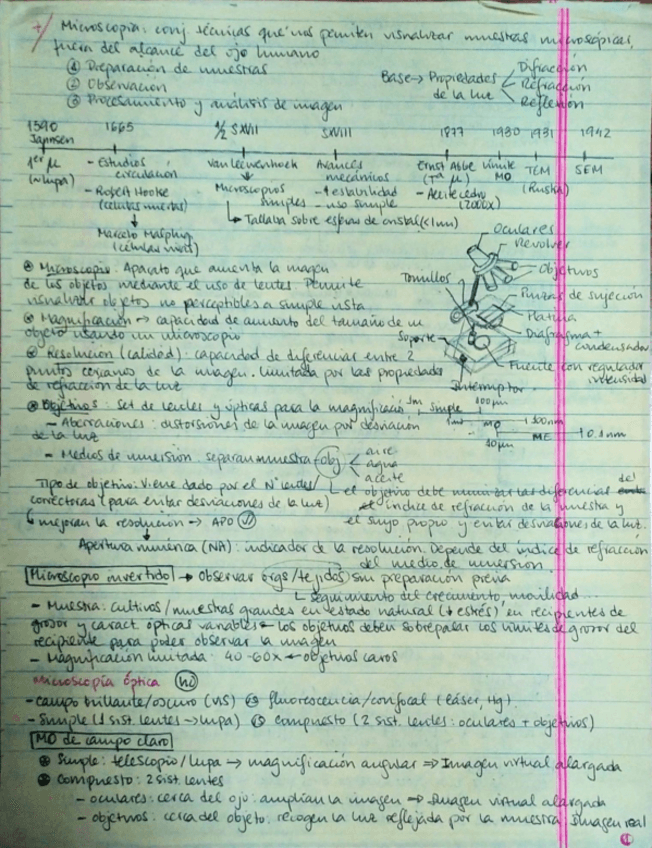 Microscopía: conj técnicas que nos permiten visualizar muestras microscópicas,
fuera del alcance del ojo humano
① Preparación de muestras
② Observación
③ Procesamiento y análisis de imagen
Base → Propiedades de la luz
Difracción
Refracción
Reflexión
1590 Janssen
1er μ (~lupa)
1665
- Estudios circulación
- Robert Hooke (células muertas)
Marcelo Malphigi (células vivas)
1/2 SXVII
Van Leewenhoek
Microscopios simples
Tallaba sobre esferas de cristal (<1mm)
SXVIII
Avances mecánicos
- ↑ estabilidad
- uso simple
1877
Ernst Abbe (Tª μ)
- Aceite cedro (2000x)
1930
Límite MO
1931
TEM (Ruska)
1942
SEM
Oculares
Revolver
Objetivos
Pinzas de sujeción
Platina
Diafragma + condensador
Fuente con regulador intensidad
Interruptor
Soporte
Tornillos
⊛ Microscopio: Aparato que aumenta la imagen
de los objetos mediante el uso de lentes. Permite
visualizar objetos no perceptibles a simple vista
⊛ Magnificación → capacidad de aumento del tamaño de un
objeto usando un microscopio
⊛ Resolución (calidad): capacidad de diferenciar entre 2
puntos cercanos de la imagen. Limitada por las propiedades
de refracción de la luz
⊛ Objetivos: Set de lentes y ópticas para la magnificació.
1m simple 100μm
1mm MO 100nm
10μm ME 0.1nm
- Aberraciones: distorsiones de la imagen por desviación
de la luz
- Medios de inmersión: separan muestra - obj
aire
agua
aceite
Tipo de objetivo: Viene dado por el Nº lentes
correctoras (para evitar desviaciones de la luz)
el objetivo debe minimizar las diferencias del
índice de refracción de la muestra y
el suyo propio y evitar desviaciones de la luz.
mejoran la resolución → APO
Apertura numérica (NA): indicador de la resolución. Depende del índice de refracción
del medio de inmersión
Microscopio invertido → Observar orgs/tejidos sin preparación previa
seguimiento del crecimiento, movilidad...
- Muestra: cultivos/muestras grandes en estado natural (↓ estrés) en recipientes de
grosor y caract. ópticas variables ← los objetivos deben sobrepasar los límites de grosor del
recipiente para poder observar la imagen
- Magnificación limitada: 40-60x ← objetivos caros
Microscopía óptica
- campo brillante/oscuro (VIS) fluorescencia/confocal (láser, Hg)
- Simple (1 sist. lentes → lupa) compuesto (2 sist. lentes: oculares + objetivos)
MO de campo claro
⊛ Simple: telescopio/lupa → magnificación angular ⇒ Imagen virtual alargada
⊛ Compuesto: 2 sist. lentes
- oculares: cerca del ojo: amplían la imagen ⇒ Imagen virtual alargada
- objetivos: cerca del objeto. recogen la luz reflejada por la muestra: Imagen real